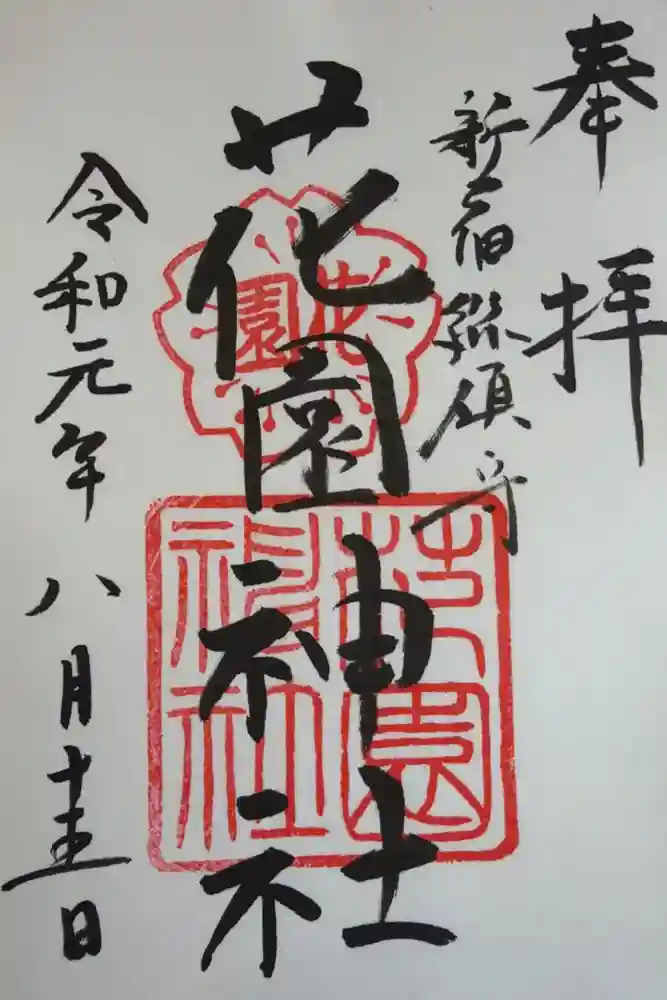 奉拝
新宿総鎮守
花園神社
花園
花園神社
令和元年八月十五日